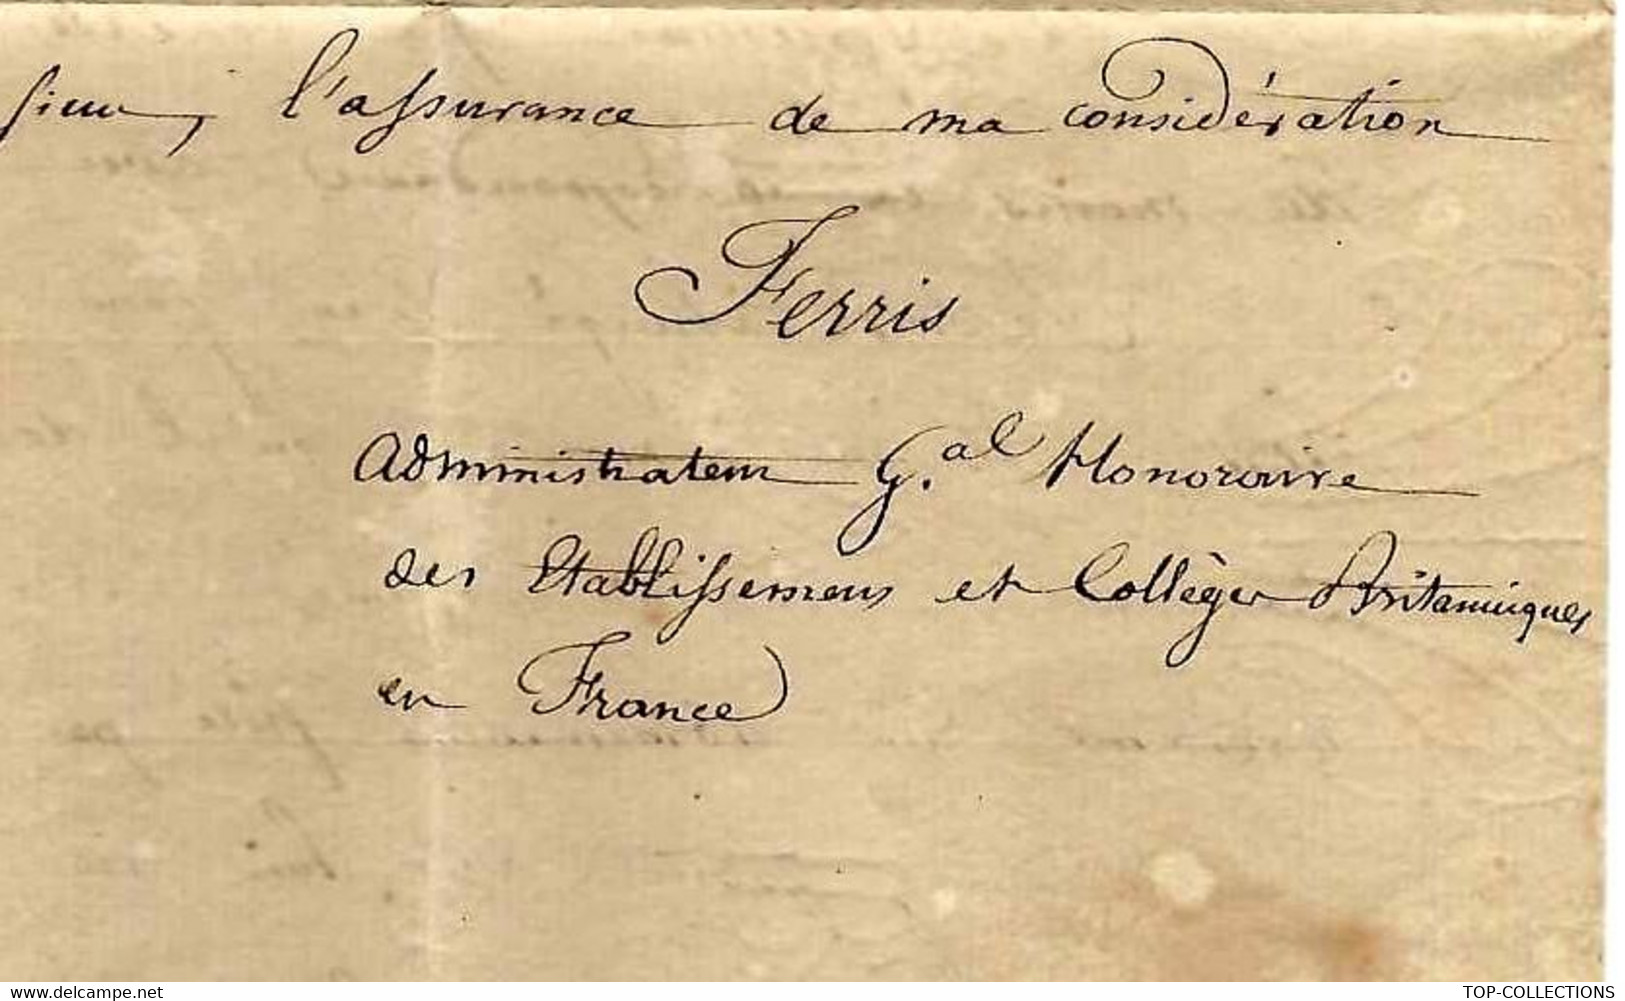 sieur, l'assurance de ma considération
Ferris
Administrateur G.al Honoraire
des Etablissemens et Collèges Britanniques
en France
www.delcampe.net
TOP-COLLECTIONS